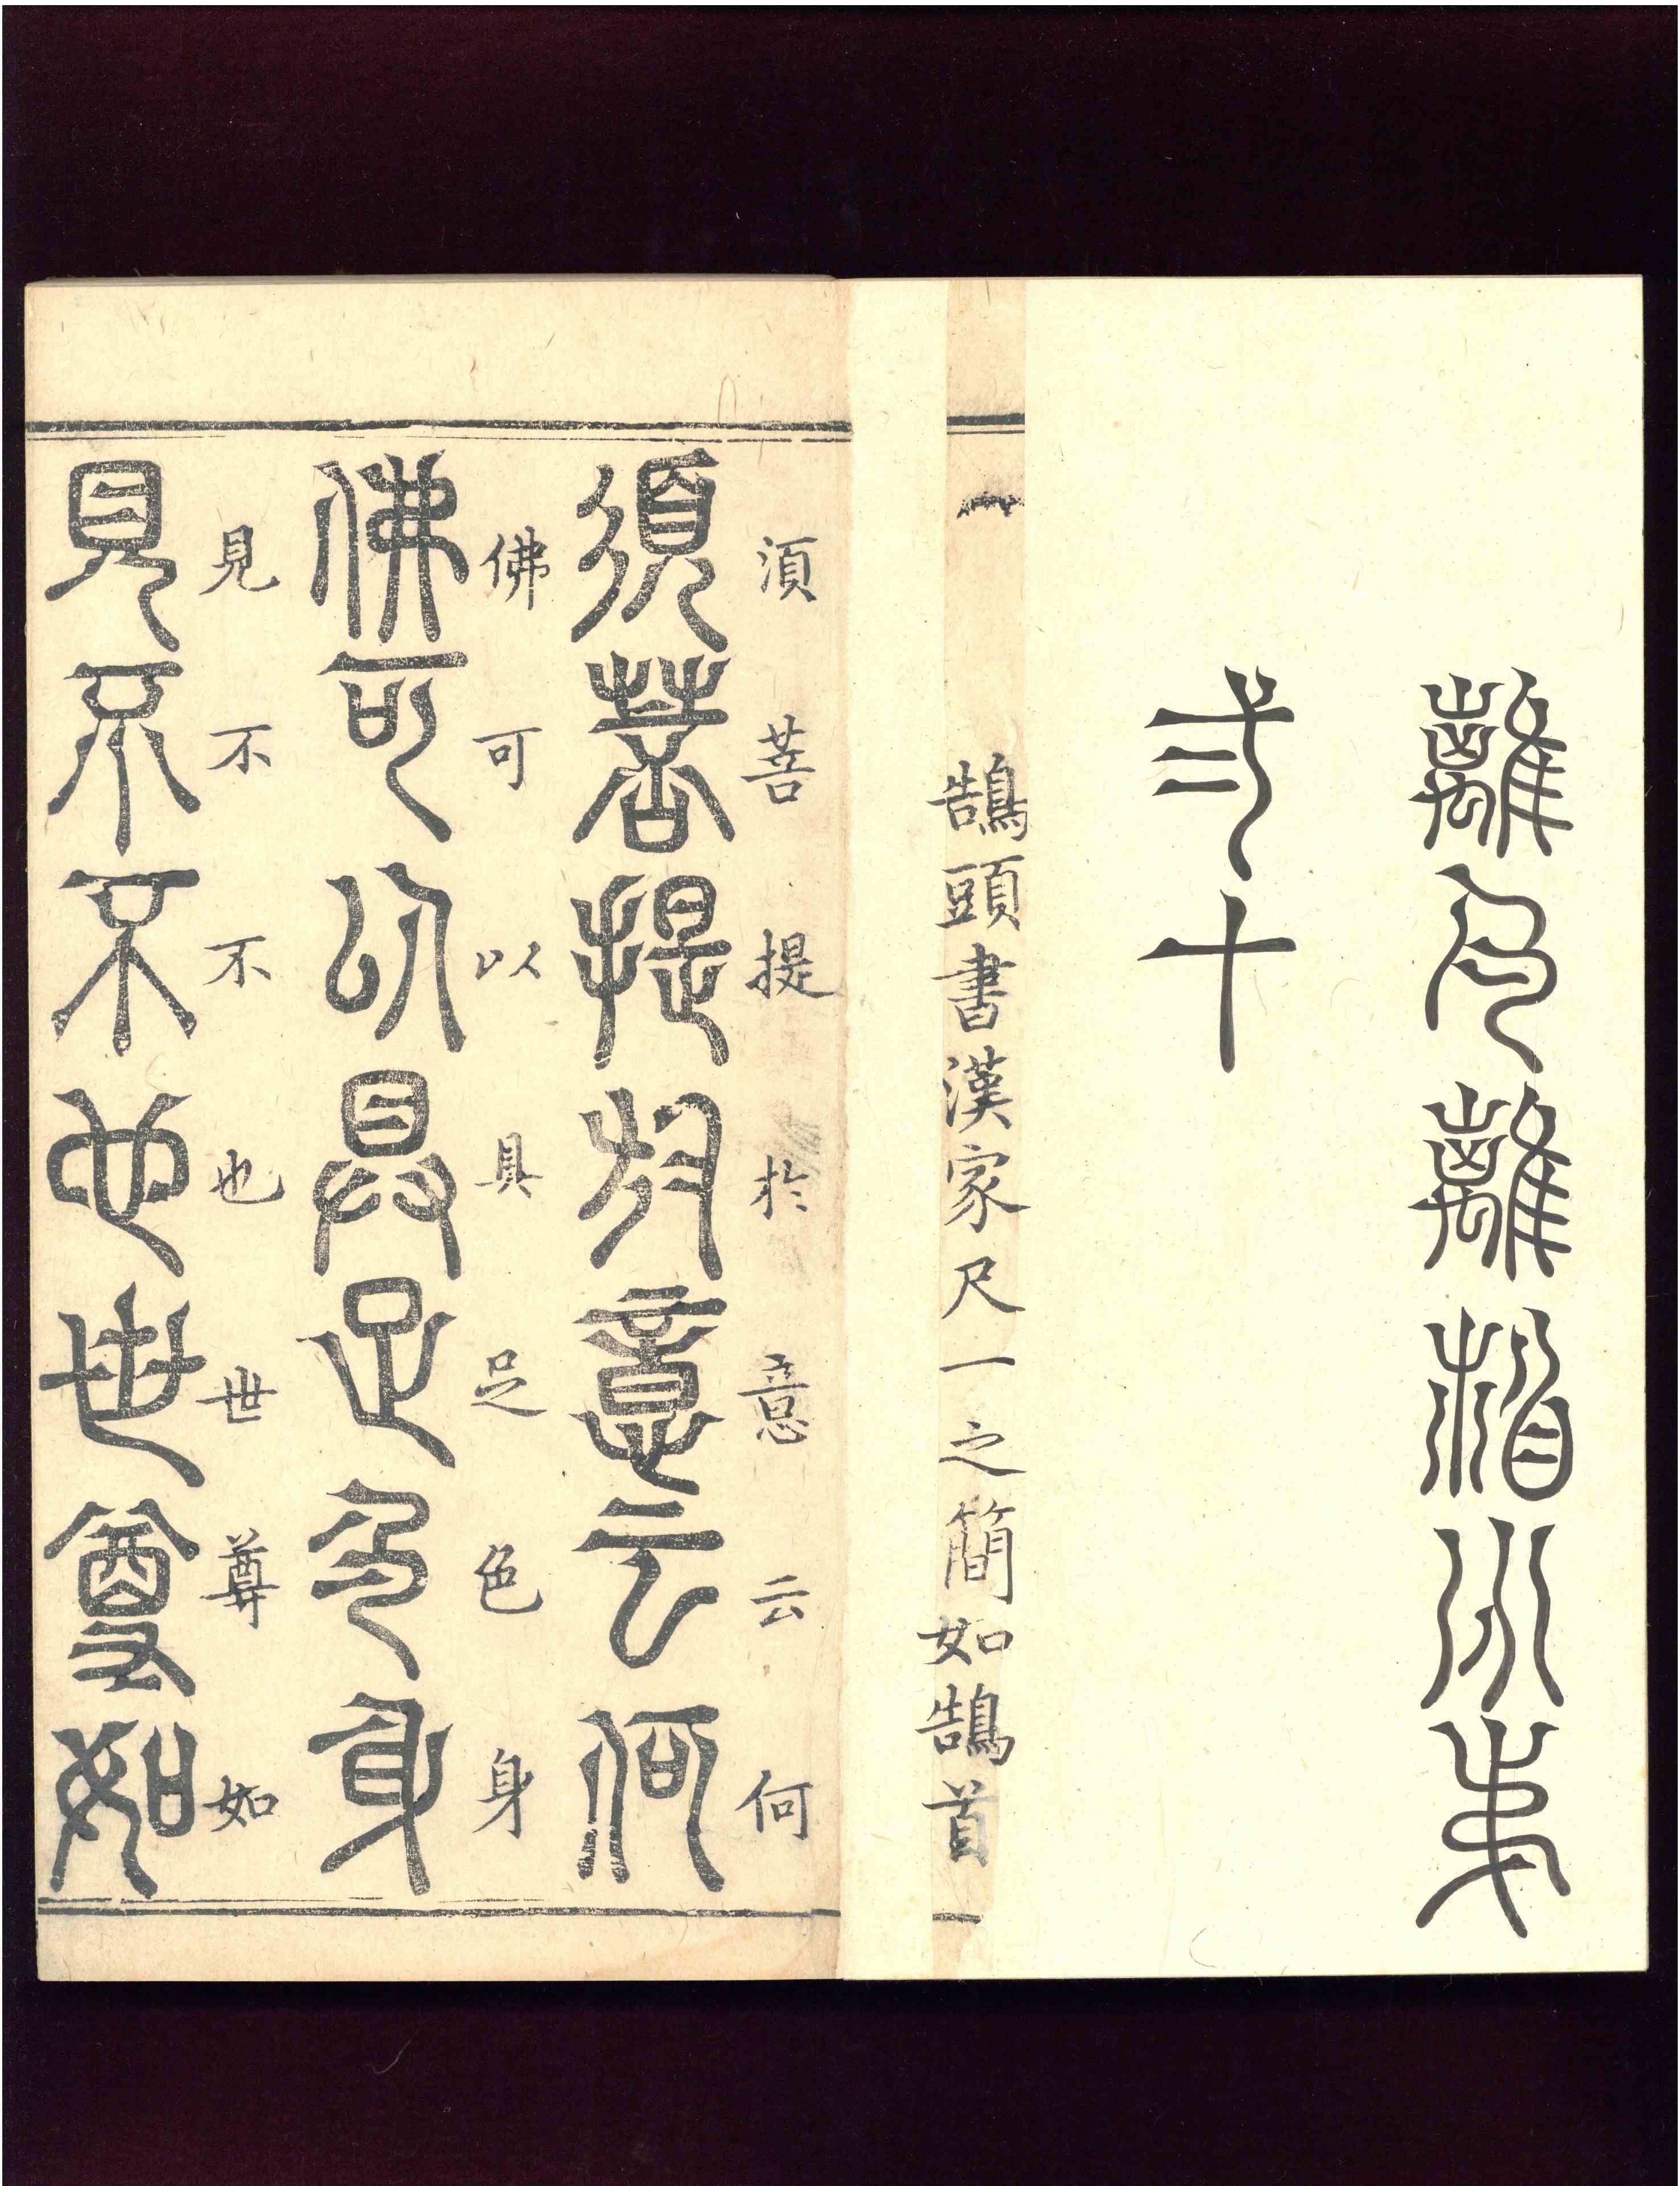 離色離相分弟
弍十
鵠頭書漢家尺一之簡如鵠首
須菩提於意云何
須菩提於意云何
佛可以具足色身
佛可以具足色身
見不不也世尊如
見不不也世尊如